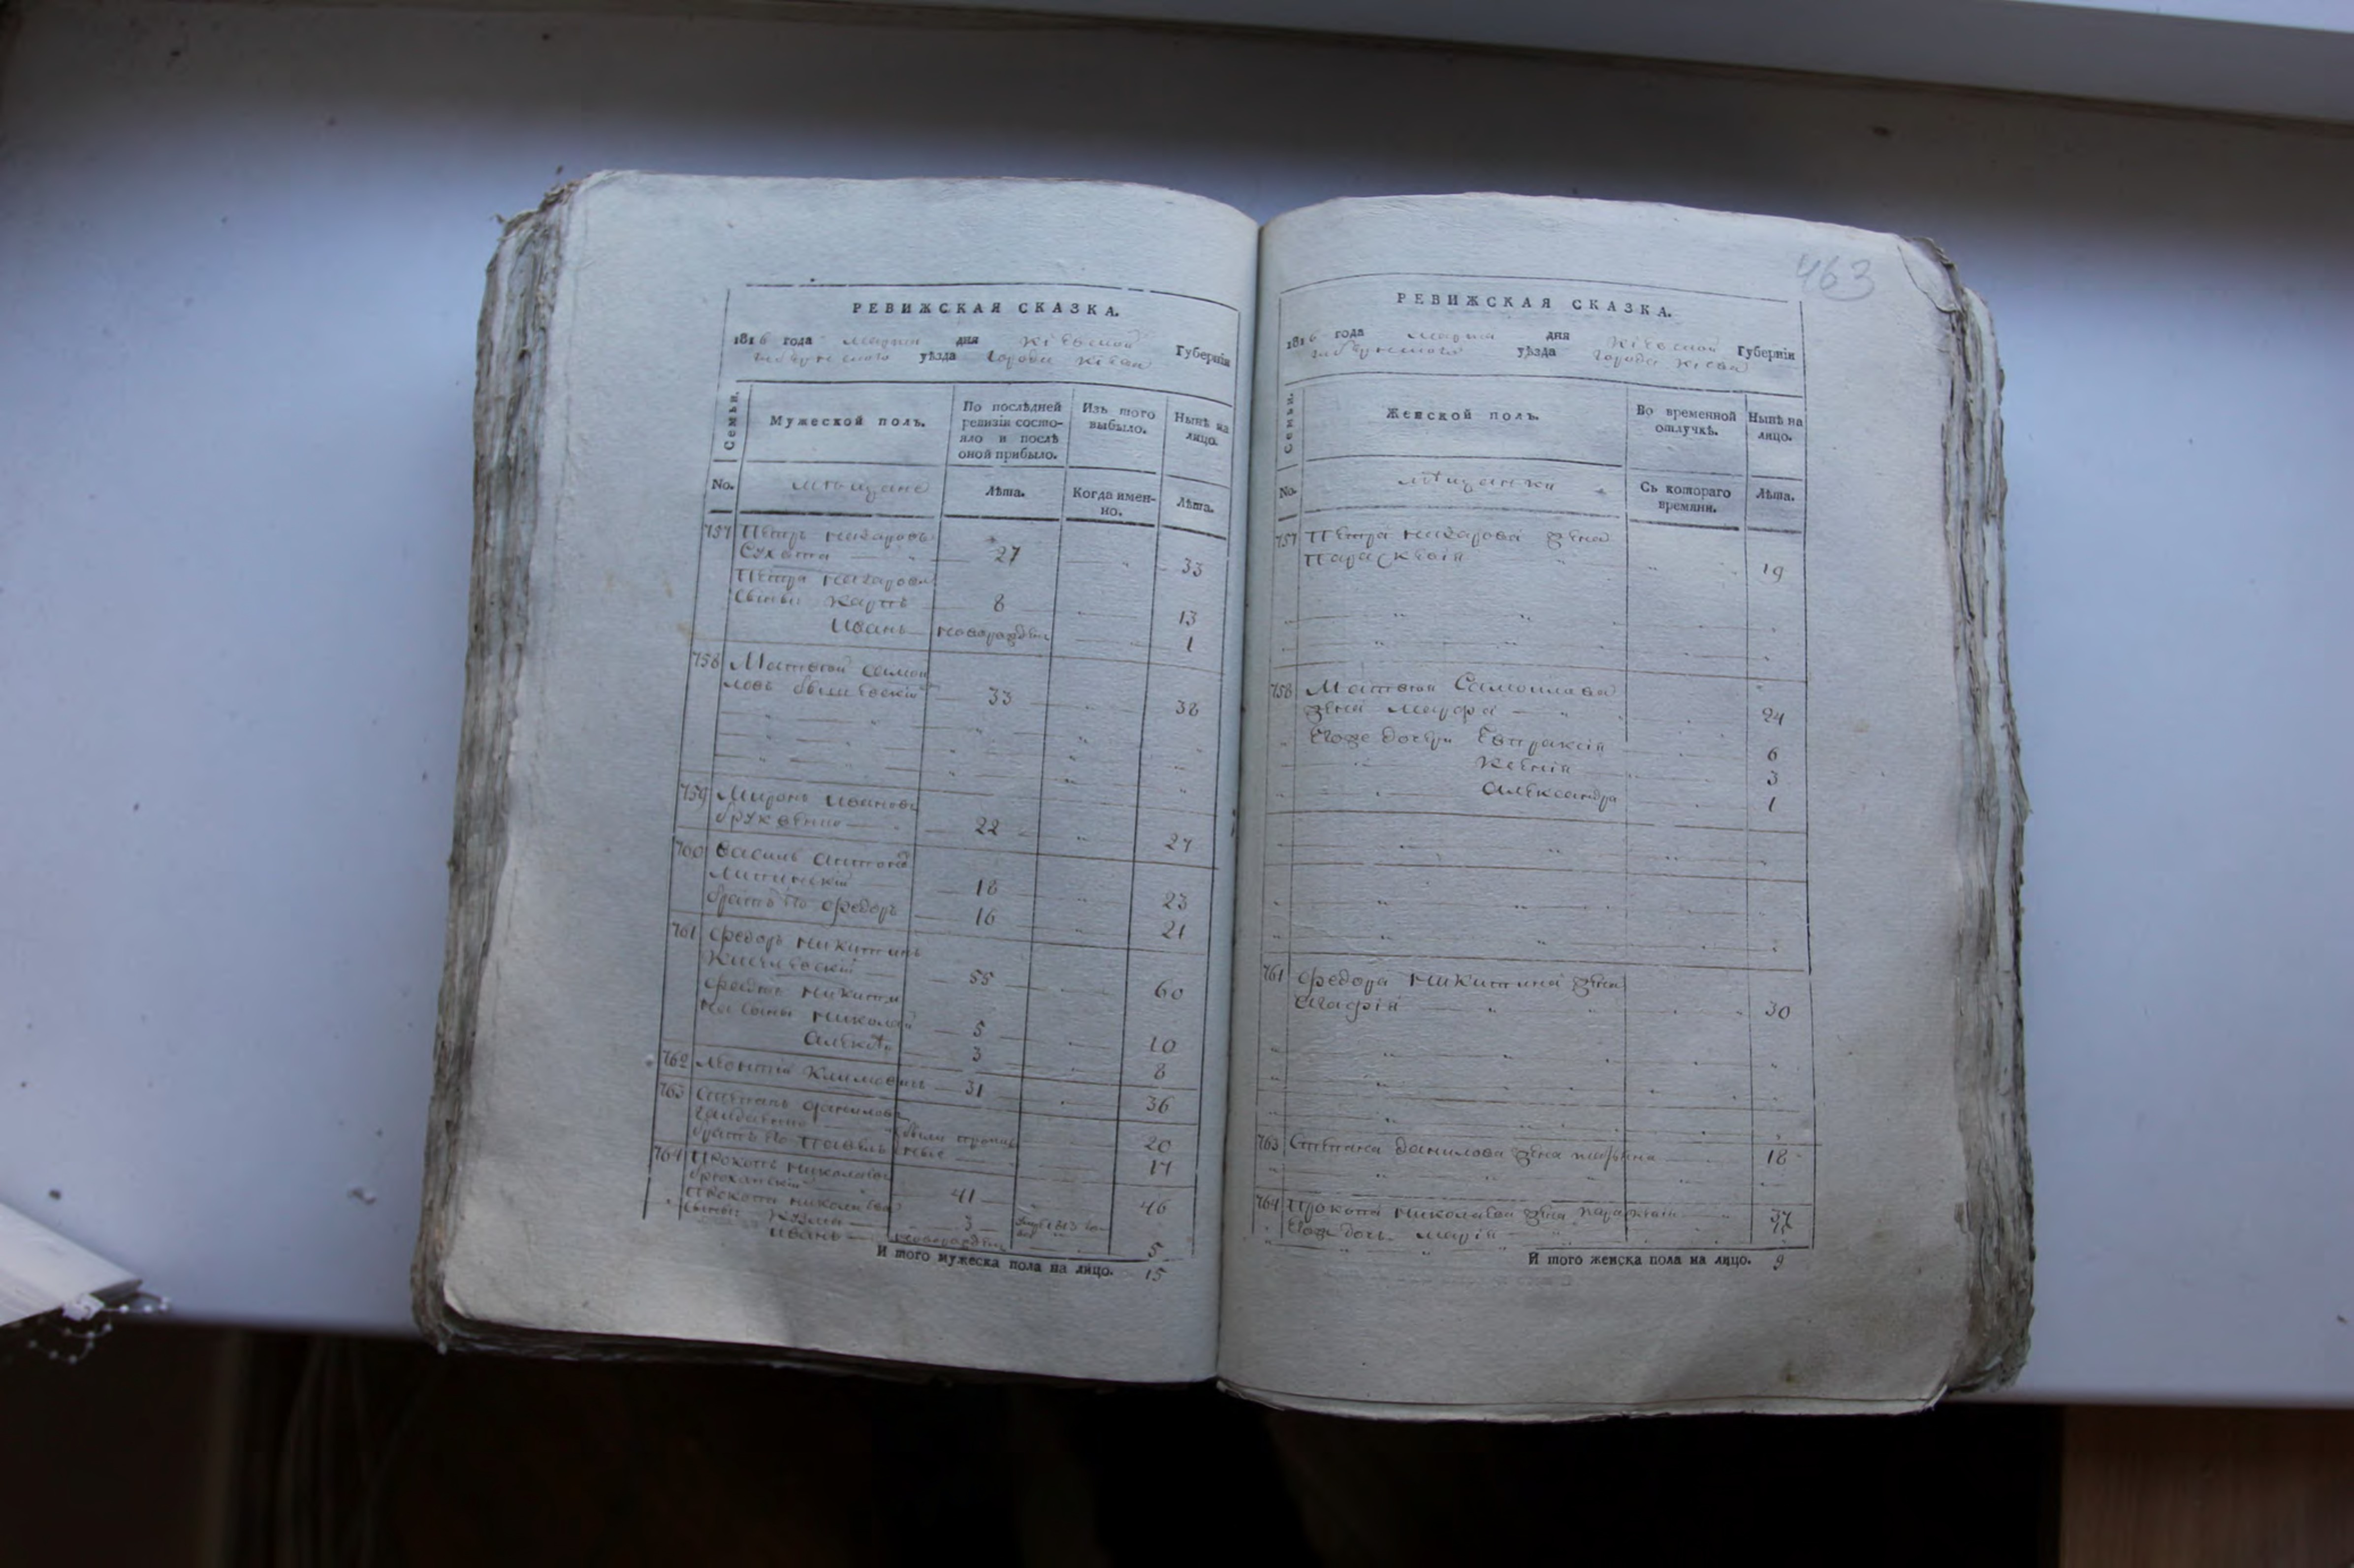 463
РЕВИЖСКАЯ СКАЗКА.
1816 года марта дня Кіевской Губерніи
уѣзда города Кіева
Семьи. Мужеской полъ. По послѣдней ревизіи состояло и послѣ оной прибыло. Изъ того выбыло. Нынѣ на лицо.
No. мѣщане Лѣта. Когда именно. Лѣта.
757 Петръ Назаровъ
Сухота 27 33
Петра Назарова
сыновья Карпъ 8 13
Иванъ новорожден 1
758 Матвѣй Самой
ловъ 33 38
759 Миронъ Ивановъ
22 27
760 Василь Антоновъ
Липинскій 18 23
братъ его Федоръ 16 21
761 Федоръ Никитинъ
Киселевскій 55 60
Федора Никити
на сыны Николай 5 10
Алексѣй 3 8
762 Леонтій Климовичъ 31 36
763 Степанъ Даниловъ
20
братъ его Павелъ 17
764 Прокопъ Николаевъ
41 46
Прокопа Николаева
сыны Кузма 3
Иванъ новорожден 5
И того мужеска пола на лицо. 15
РЕВИЖСКАЯ СКАЗКА.
1816 года марта дня Кіевской Губерніи
уѣзда города Кіева
Семьи. Женской полъ. Во временной отлучкѣ. Нынѣ на лицо.
No. мѣщанки Съ котораго времяни. Лѣта.
757 Петра Назарова жена
Параскевія 19
758 Матвѣя Самойлова
жена Мавра 24
Егоже дочери Евпраксія 6
Ксенія 3
Александра 1
761 Федора Никитина жена
Агафія 30
763 Степана Данилова жена 18
764 Прокопа Николаева жена
Егоже дочь Марія
И того женска пола на лицо. 9